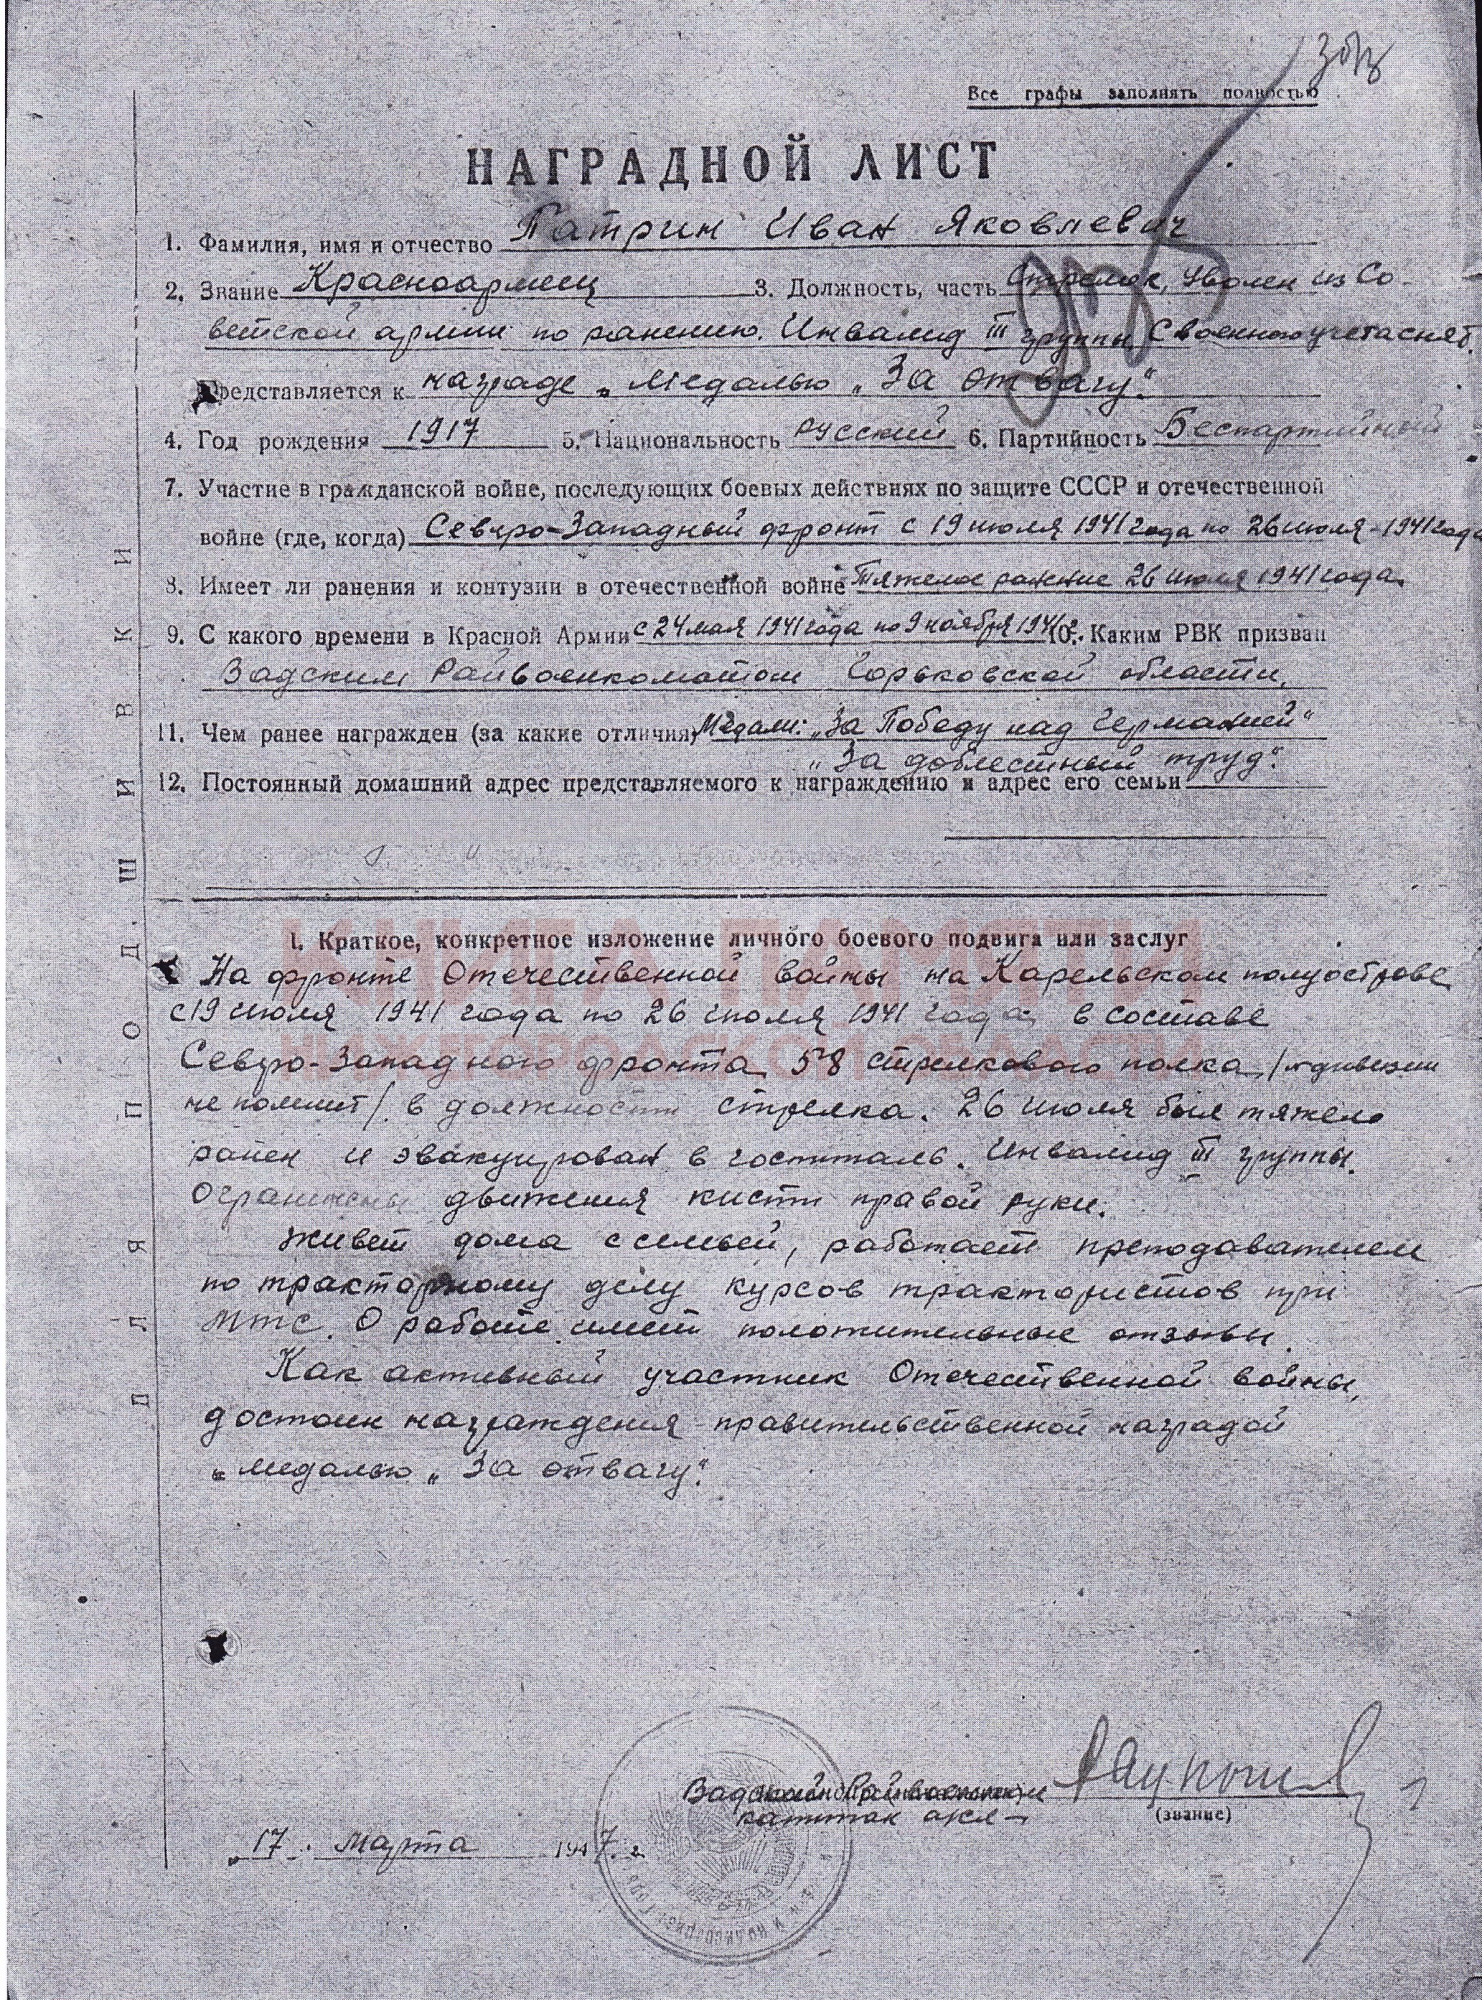 Все графы заполнять полностью
НАГРАДНОЙ ЛИСТ
1. Фамилия, имя и отчество Патрин Иван Яковлевич
2. Звание Красноармеец 3. Должность, часть Стрелок, уволен из Со-
ветской армии по ранению. Инвалид III группы С военного учета снят.
Представляется к награде „Медалью „За отвагу“.
4. Год рождения 1917 5. Национальность русский 6. Партийность Беспартийный
7. Участие в гражданской войне, последующих боевых действиях по защите СССР и отечественной
войне (где, когда) Северо-Западный фронт с 19 июля 1941 года по 26 июля-1941 года
8. Имеет ли ранения и контузии в отечественной войне Тяжелое ранение 26 июля 1941 года.
9. С какого времени в Красной Армии с 24 мая 1941 года по 9 ноября 1941 г. 10. Каким РВК призван
Вадским Райвоенкоматом Горьковской области.
11. Чем ранее награжден (за какие отличия) Медали: „За Победу над Германией“
„За доблестный труд“.
12. Постоянный домашний адрес представляемого к награждению и адрес его семьи
КНИГА ПАМЯТИ
НИЖЕГОРОДСКОЙ ОБЛАСТИ
I. Краткое, конкретное изложение личного боевого подвига или заслуг
На фронте Отечественной войны на Карельском полуострове
с 19 июля 1941 года по 26 июля 1941 года в составе
Северо-Западного фронта 58 стрелкового полка /№ дивизии
не помнит/ в должности стрелка. 26 июля был тяжело
ранен и эвакуирован в госпиталь. Инвалид III группы.
Ограничены движения кисти правой руки.
Живет дома с семьей, работает преподавателем
по тракторному делу курсов трактористов при
МТС. О работе имеет положительные отзывы.
Как активный участник Отечественной войны,
достоин награждения правительственной наградой
„медалью „За отвагу“.
ДЛЯ ПОДШИВКИ
капитан
(звание)
„17. марта 1947. г.